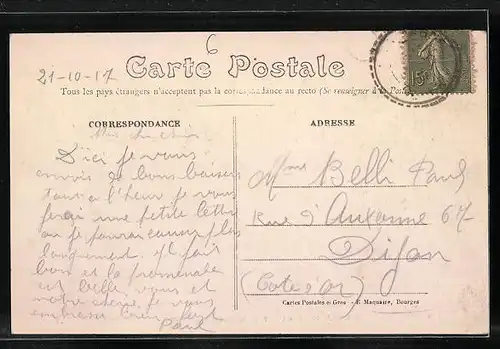 6
21-10-17
Carte Postale
15c
Tous les pays étrangers n'acceptent pas la correspondance au recto (Se renseigner à la Poste)
CORRESPONDANCE
ADRESSE
D'ici je vous
envois de bons baisers
tout à l'heur je vous
ferai une petite lettre
ou je pourai causer plus
longuement. Il fait
bon et la promenade
est belle, vous et
notre chérie je vous
embrasse bien fort
Paul
Mme Belli Paul
Rue d'Auxonne 67
Dijon
(Cote d'or)
Cartes Postales en Gros - E. Maquaire, Bourges